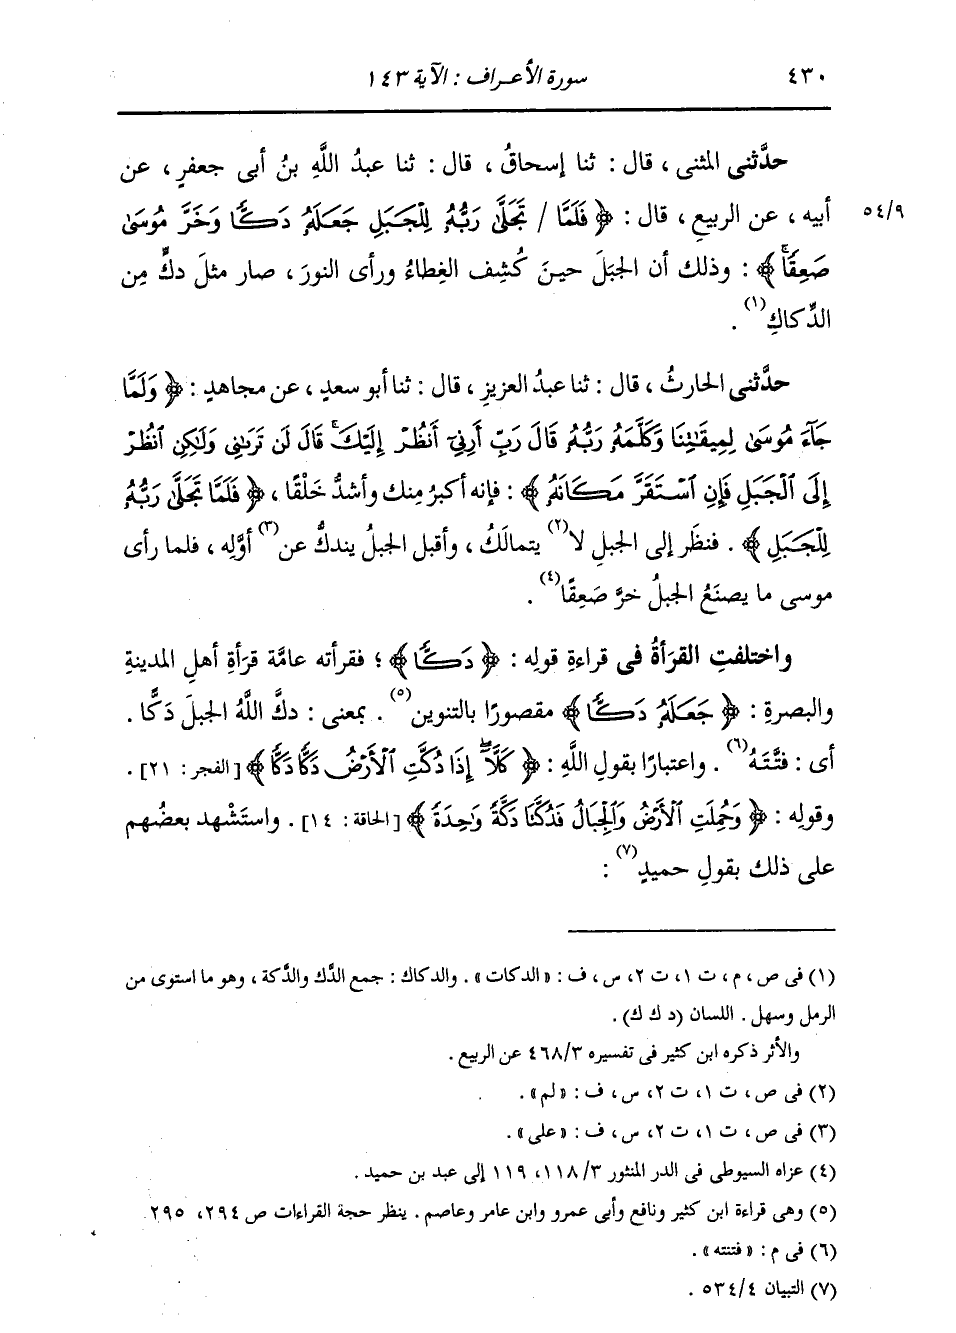 ٤٣٠ سورة الأعراف : الآية ١٤٣
حدَّثني المثنى ، قال : ثنا إسحاقُ ، قال : ثنا عبدُ اللَّهِ بنُ أبى جعفرٍ ، عن
٥٤/٩ أبيه ، عن الربيعِ ، قال : ﴿ فَلَمَّا / تَجَلَّىٰ رَبُّهُۥ لِلْجَبَلِ جَعَلَهُۥ دَكًّا وَخَرَّ مُوسَىٰ
صَعِقًا ۚ ﴾ : وذلك أن الجبَلَ حينَ كُشِف الغِطاءُ ورأى النورَ ، صار مثلَ دكٍّ مِن
الدِّكاكِ(١) .
حدَّثني الحارثُ ، قال : ثنا عبدُ العزيزِ ، قال : ثنا أبو سعدٍ ، عن مجاهدٍ : ﴿ وَلَمَّا
جَآءَ مُوسَىٰ لِمِيقَٰتِنَا وَكَلَّمَهُۥ رَبُّهُۥ قَالَ رَبِّ أَرِنِىٓ أَنظُرْ إِلَيْكَ ۚ قَالَ لَن تَرَىٰنِى وَلَٰكِنِ ٱنظُرْ
إِلَى ٱلْجَبَلِ فَإِنِ ٱسْتَقَرَّ مَكَانَهُۥ ﴾ : فإنه أكبرُ مِنك وأشدُّ خَلْقًا ، ﴿ فَلَمَّا تَجَلَّىٰ رَبُّهُۥ
لِلْجَبَلِ ﴾ . فنظَر إلى الجبلِ لا(٢) يتمالَكُ ، وأقبل الجبلُ يندكُّ عن(٣) أوَّلِه ، فلما رأى
موسى ما يصنَعُ الجبلُ خرَّ صَعِقًا(٤) .
واختلفتِ القرَأةُ فى قراءةِ قولِه : ﴿ دَكًّا ﴾ ؛ فقرأته عامَّة قرَأةِ أهلِ المدينةِ
والبصرةِ : ﴿ جَعَلَهُۥ دَكًّا ﴾ مقصورًا بالتنوينِ(٥) . بمعنى : دكَّ اللَّهُ الجبلَ دَكًّا .
أى : فتَّتَهُ(٦) . واعتبارًا بقولِ اللَّهِ : ﴿ كَلَّآ ۖ إِذَا دُكَّتِ ٱلْأَرْضُ دَكًّا دَكًّا ﴾ [الفجر : ٢١] .
وقولِه : ﴿ وَحُمِلَتِ ٱلْأَرْضُ وَٱلْجِبَالُ فَدُكَّتَا دَكَّةً وَٰحِدَةً ﴾ [الحاقة : ١٤] . واستَشْهد بعضُهم
على ذلك بقولِ حميدٍ(٧) :
(١) فى ص ، م ، ت ١، ت ٢، س ، ف : «الدكات» . والدكاك : جمع الدَّك والدَّكة ، وهو ما استوى من
الرمل وسهل . اللسان (د ك ك) .
والأثر ذكره ابن كثير فى تفسيره ٤٦٨/٣ عن الربيع .
(٢) فى ص ، ت ١، ت ٢، س ، ف : «لم» .
(٣) فى ص ، ت ١، ت ٢، س ، ف : «على» .
(٤) عزاه السيوطى فى الدر المنثور ١١٨/٣، ١١٩ إلى عبد بن حميد .
(٥) وهى قراءة ابن كثير ونافع وأبى عمرو وابن عامر وعاصم . ينظر حجة القراءات ص ٢٩٤، ٢٩٥
(٦) فى م : «فتنته» .
(٧) التبيان ٥٣٤/٤ .